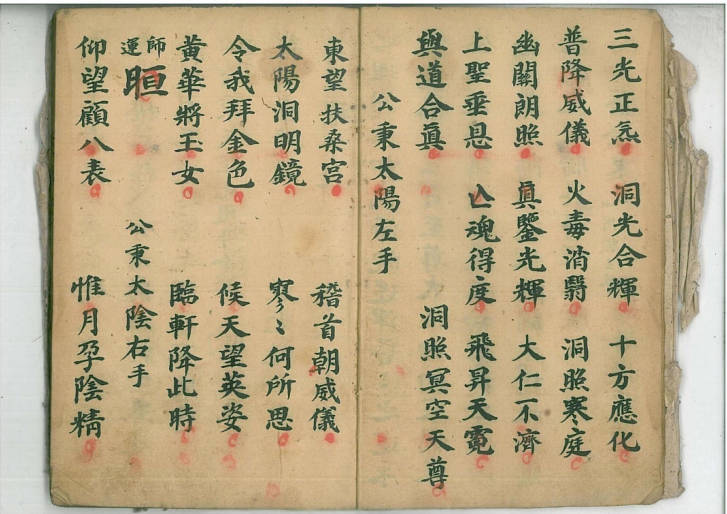 三光正炁 洞光合輝 十方應化
普降威儀 火毒消翳 洞照寒庭
幽關朗照 眞鑒光輝 大仁不濟
上聖垂㤙 亾魂得度 飛昇天霓
與道合眞 洞照冥空天尊
公秉太陽左手
東望扶桑宫 稽首朝威儀
太陽洞明鏡 寥〻何所思
令我拜金色 候天望英姿
黃華將玉女 臨軒降此時
師運 晅 公秉太陰右手
仰望顧八表 惟月孕陰精